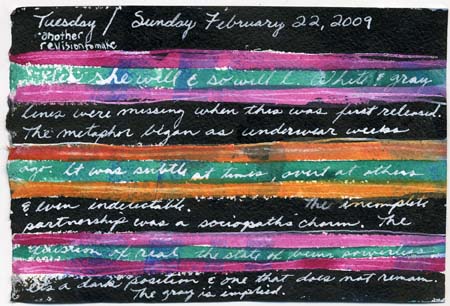 Tuesday / Sunday February 22, 2009
another
revision to make
she will & so will I. White & gray
lines were missing when this was first released.
The metaphor began as underwear weeks
ago. It was subtle at times overt at others
& even indectable. The incomplete
partnership was a sociopath's charm. The
of real the state of being
as a dark position & one that does not remain.
The gray is implied.